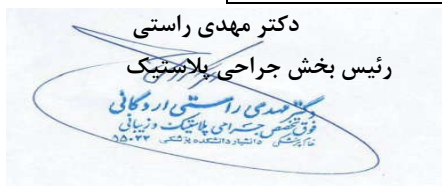 دکتر مهدی راستی
رئیس بخش جراحی پلاستیک
دکتر مهدی راستی اردکانی
فوق تخصص جراحی پلاستیک و زیبائی
دانشیار دانشکده پزشکی ۹۵۰۳۳